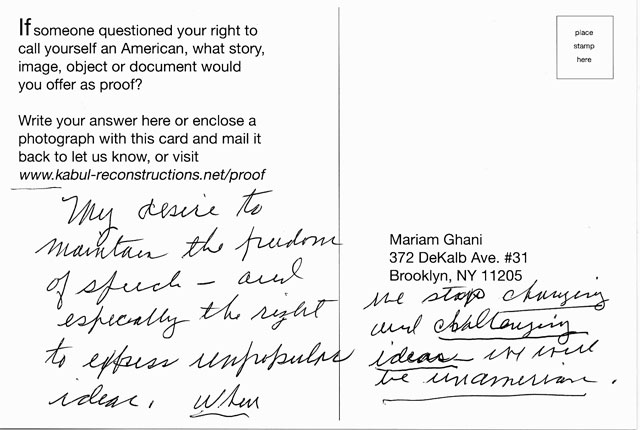 If someone questioned your right to
call yourself an American, what story,
image, object or document would
you offer as proof?
Write your answer here or enclose a
photograph with this card and mail it
back to let us know, or visit
www.kabul-reconstructions.net/proof
My desire to
maintain the freedom
of speech – and
especially the right
to express unpopular
ideas. When
place
stamp
here
Mariam Ghani
372 DeKalb Ave. #31
Brooklyn, NY 11205
we stop changing
and challenging
ideas we will
be unamerican.